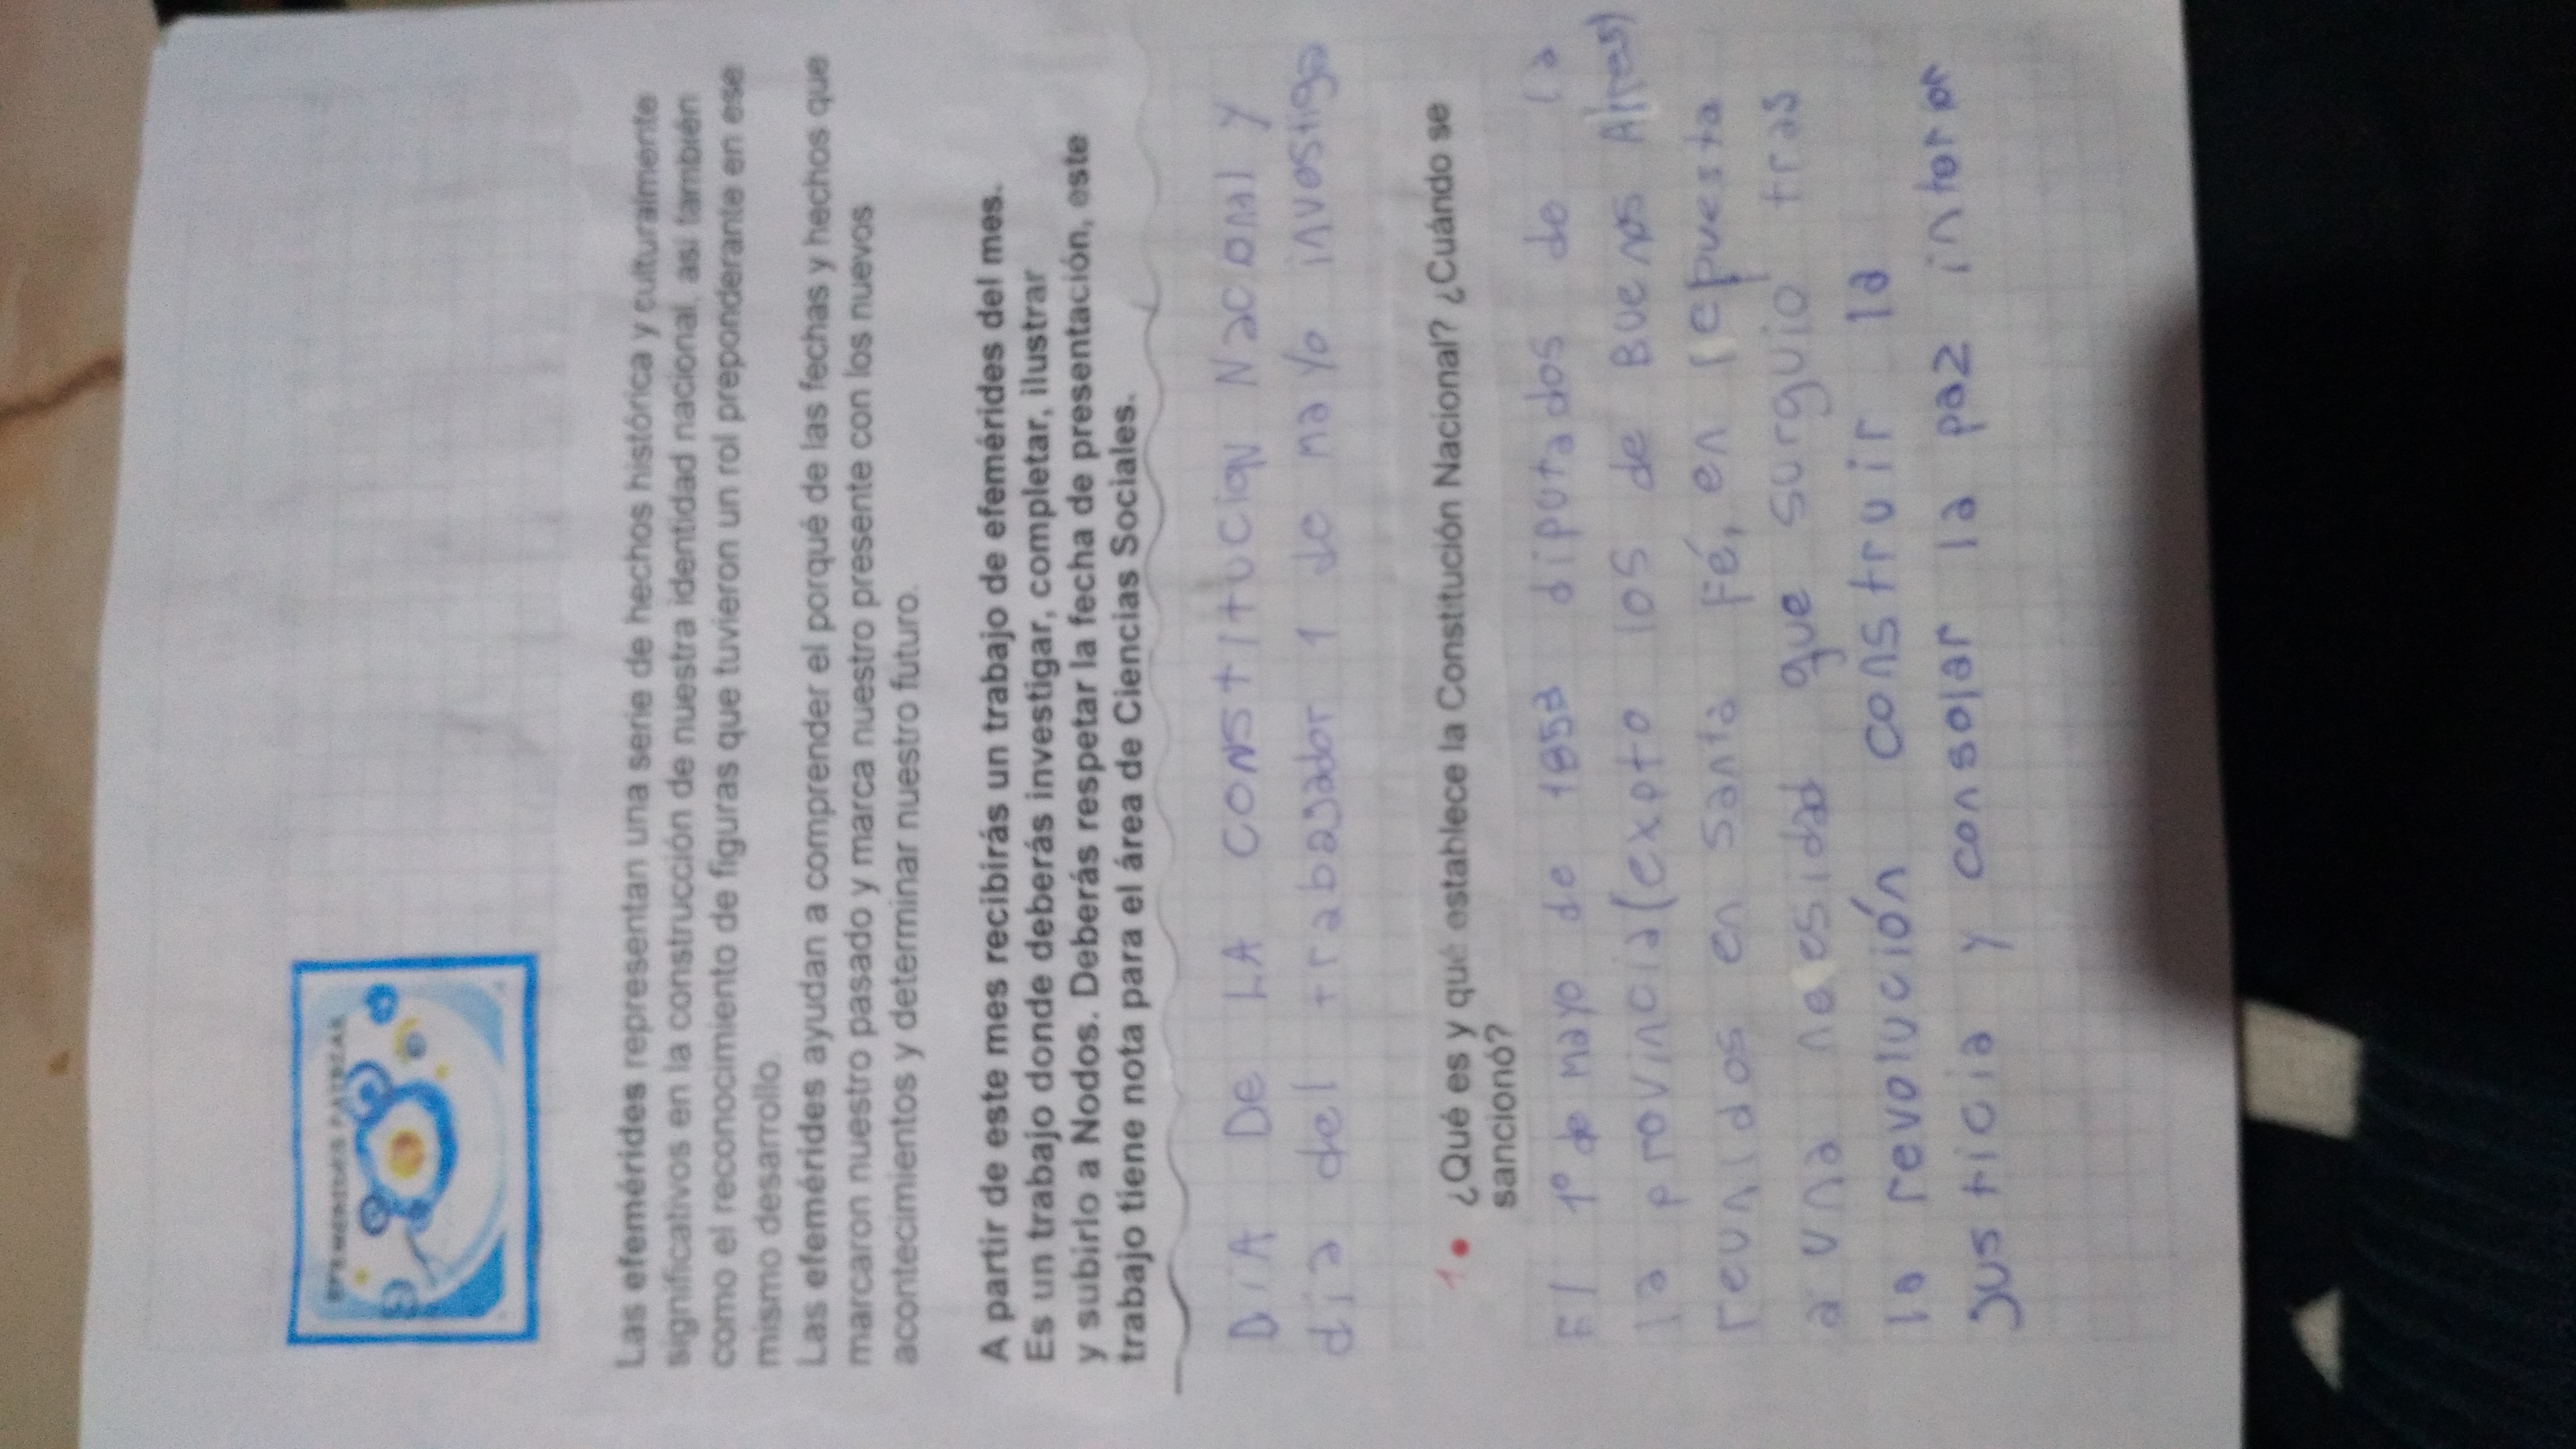 EFEMÉRIDES PATRIAS
Las efemérides representan una serie de hechos histórica y culturalmente
significativos en la construcción de nuestra identidad nacional, así también
como el reconocimiento de figuras que tuvieron un rol preponderante en ese
mismo desarrollo.
Las efemérides ayudan a comprender el porqué de las fechas y hechos que
marcaron nuestro pasado y marca nuestro presente con los nuevos
acontecimientos y determinar nuestro futuro.
A partir de este mes recibirás un trabajo de efemérides del mes.
Es un trabajo donde deberás investigar, completar, ilustrar
y subirlo a Nodos. Deberás respetar la fecha de presentación, este
trabajo tiene nota para el área de Ciencias Sociales.
DiA De LA CONSTITUCION NacioNal y
dia del trabajador 1 de mayo investiga
1• ¿Qué es y qué establece la Constitución Nacional? ¿Cuándo se
sancionó?
El 1º de mayo de 1853 diputados de la
la provincia (expto los de Buenos Aires)
reunidos en Santa Fé, en repuesta
a una nesesidad que surguio tras
la revolución construir la
justicia y consolar la paz interor